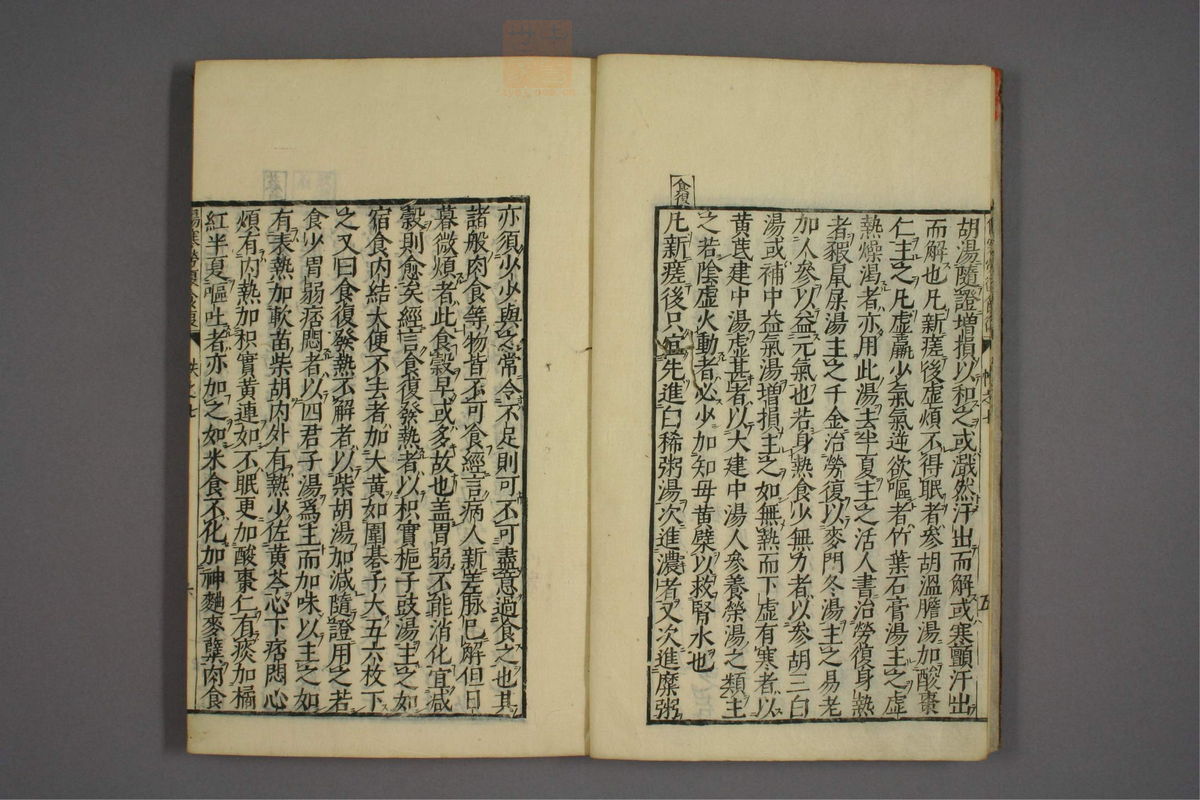 胡湯隨證増損以和之或濈然汗出而解或寒顫汗出
而解也凡新瘥後虛煩不得眠者参胡溫膽湯加酸棗
仁主之凡虛羸少氣氣逆欲嘔者竹葉石膏湯主之虛
熱燥渴者亦用此湯去半夏主之活人書治勞復身熱
者豭鼠屎湯主之千金治勞復以麥門冬湯主之易老
加人參以益元氣也若身熱食少無力者以參胡三白
湯或補中益氣湯增損主之如無熱而下虛有寒者以
黄芪建中湯虛甚者以大建中湯人參養榮湯之類主
之若陰虛火動者必少加知母黄檗以救腎水也
食復
凡新瘥後只宜先進白稀粥湯次進濃者又次進糜粥
亦須少少與之常令不足則可不可盡意過食之也其
諸般肉食等物皆不可食經言病人新差脉已解但日
暮微煩者此食穀早或多故也盖胃弱不能消化宜减
穀則愈矣經言食復發熱者以枳實梔子豉湯主之如
宿食内結大便不去者加大黄如圍碁子大五六枚下
之又曰食復發熱不解者以柴胡湯加减隨證用之若
食少胃弱痞悶者以四君子湯爲主而加味以主之如
有表熱加軟苗柴胡内外有熱少佐黄芩心下痞悶心
煩有内熱加枳實黄連如不眠更加酸棗仁有痰加橘
紅半夏嘔吐者亦加之如米食不化加神麯麥糵肉食
帙之七
五
六